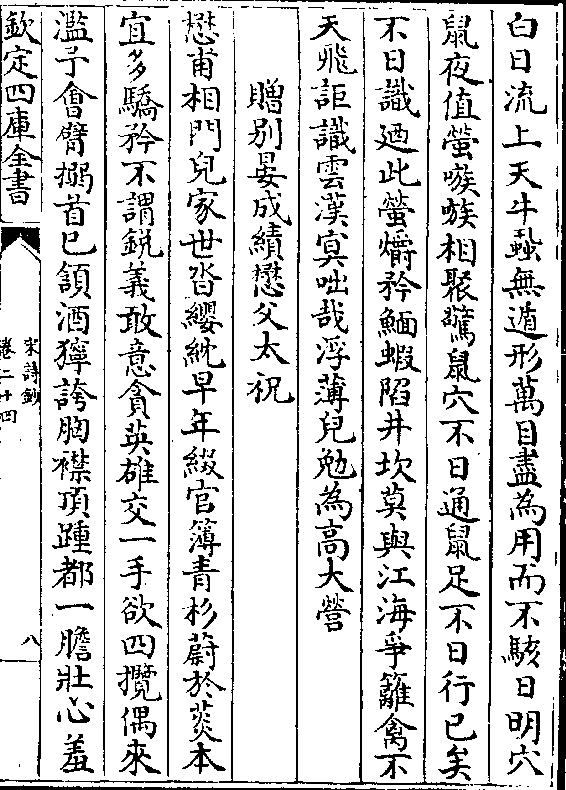 白日流上天牛蝨無遁形萬目盡為用而不駭日明穴
鼠夜值螢嗾嗾相聚驚鼠穴不日通鼠足不日行已矣
不日識廼此螢爝矜鮞蝦陷井坎莫與江海爭籬禽不
天飛詎識雲漢㝠咄哉浮薄兒勉為高大營
贈别晏成績懋父太祝
懋甫相門兒家世沓纓紞早年綴官簿青杉蔚於菼本
宜多驕矜不謂鋭義敢意貪英雄交一手欲四攬偶來
濫予會臂搦首已頷酒獰誇胸襟頂踵都一膽壯心羞
欽定四庫全書
宋詩鈔
卷二十四
八